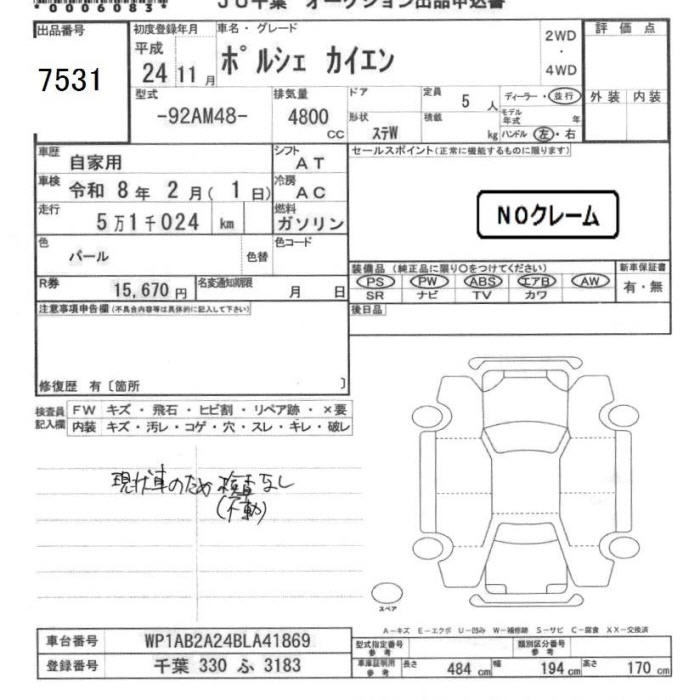 *00006083* JU千葉 オークション出品申込書
出品番号 初度登録年月 車名・グレード 評価点
7531 平成 24年 11月 ポルシェ カイエン 2WD・4WD
型式 排気量 ドア 定員 5人 ディーラー・並行 外装 内装
-92AM48- 4800cc 形状 ステW 積載 kg モデル年式 年 ハンドル 左・右
車歴 自家用 シフト AT セールスポイント(正常に機能するものに限ります)
車検 令和 8年 2月( 1日) 冷房 AC
走行 5万1千024 km 燃料 ガソリン NOクレーム
色 パール 色替 色コード
装備品 (純正品に限り○をつけてください) 新車保証書
R券 15,670円 名変通知期限 月 日 PS PW ABS エアB AW 有・無
SR ナビ TV カワ
注意事項申告欄(不具合内容等は具体的に記入して下さい) 後日品
修復歴 有〔箇所 〕
検査員記入欄 FW キズ・飛石・ヒビ割・リペア跡・×要
内装 キズ・汚レ・コゲ・穴・スレ・キレ・破レ
現状車のため 検査なし
(不動)
スペア
A-キズ E-エクボ U-凹み W-補修跡 S-サビ C-腐食 XX-交換済
車台番号 WP1AB2A24BLA41869 型式指定番号 参考 類別区分番号 参考
登録番号 千葉 330 ふ 3183 車庫証明用 参考 長さ 484cm 幅 194cm 高さ 170cm